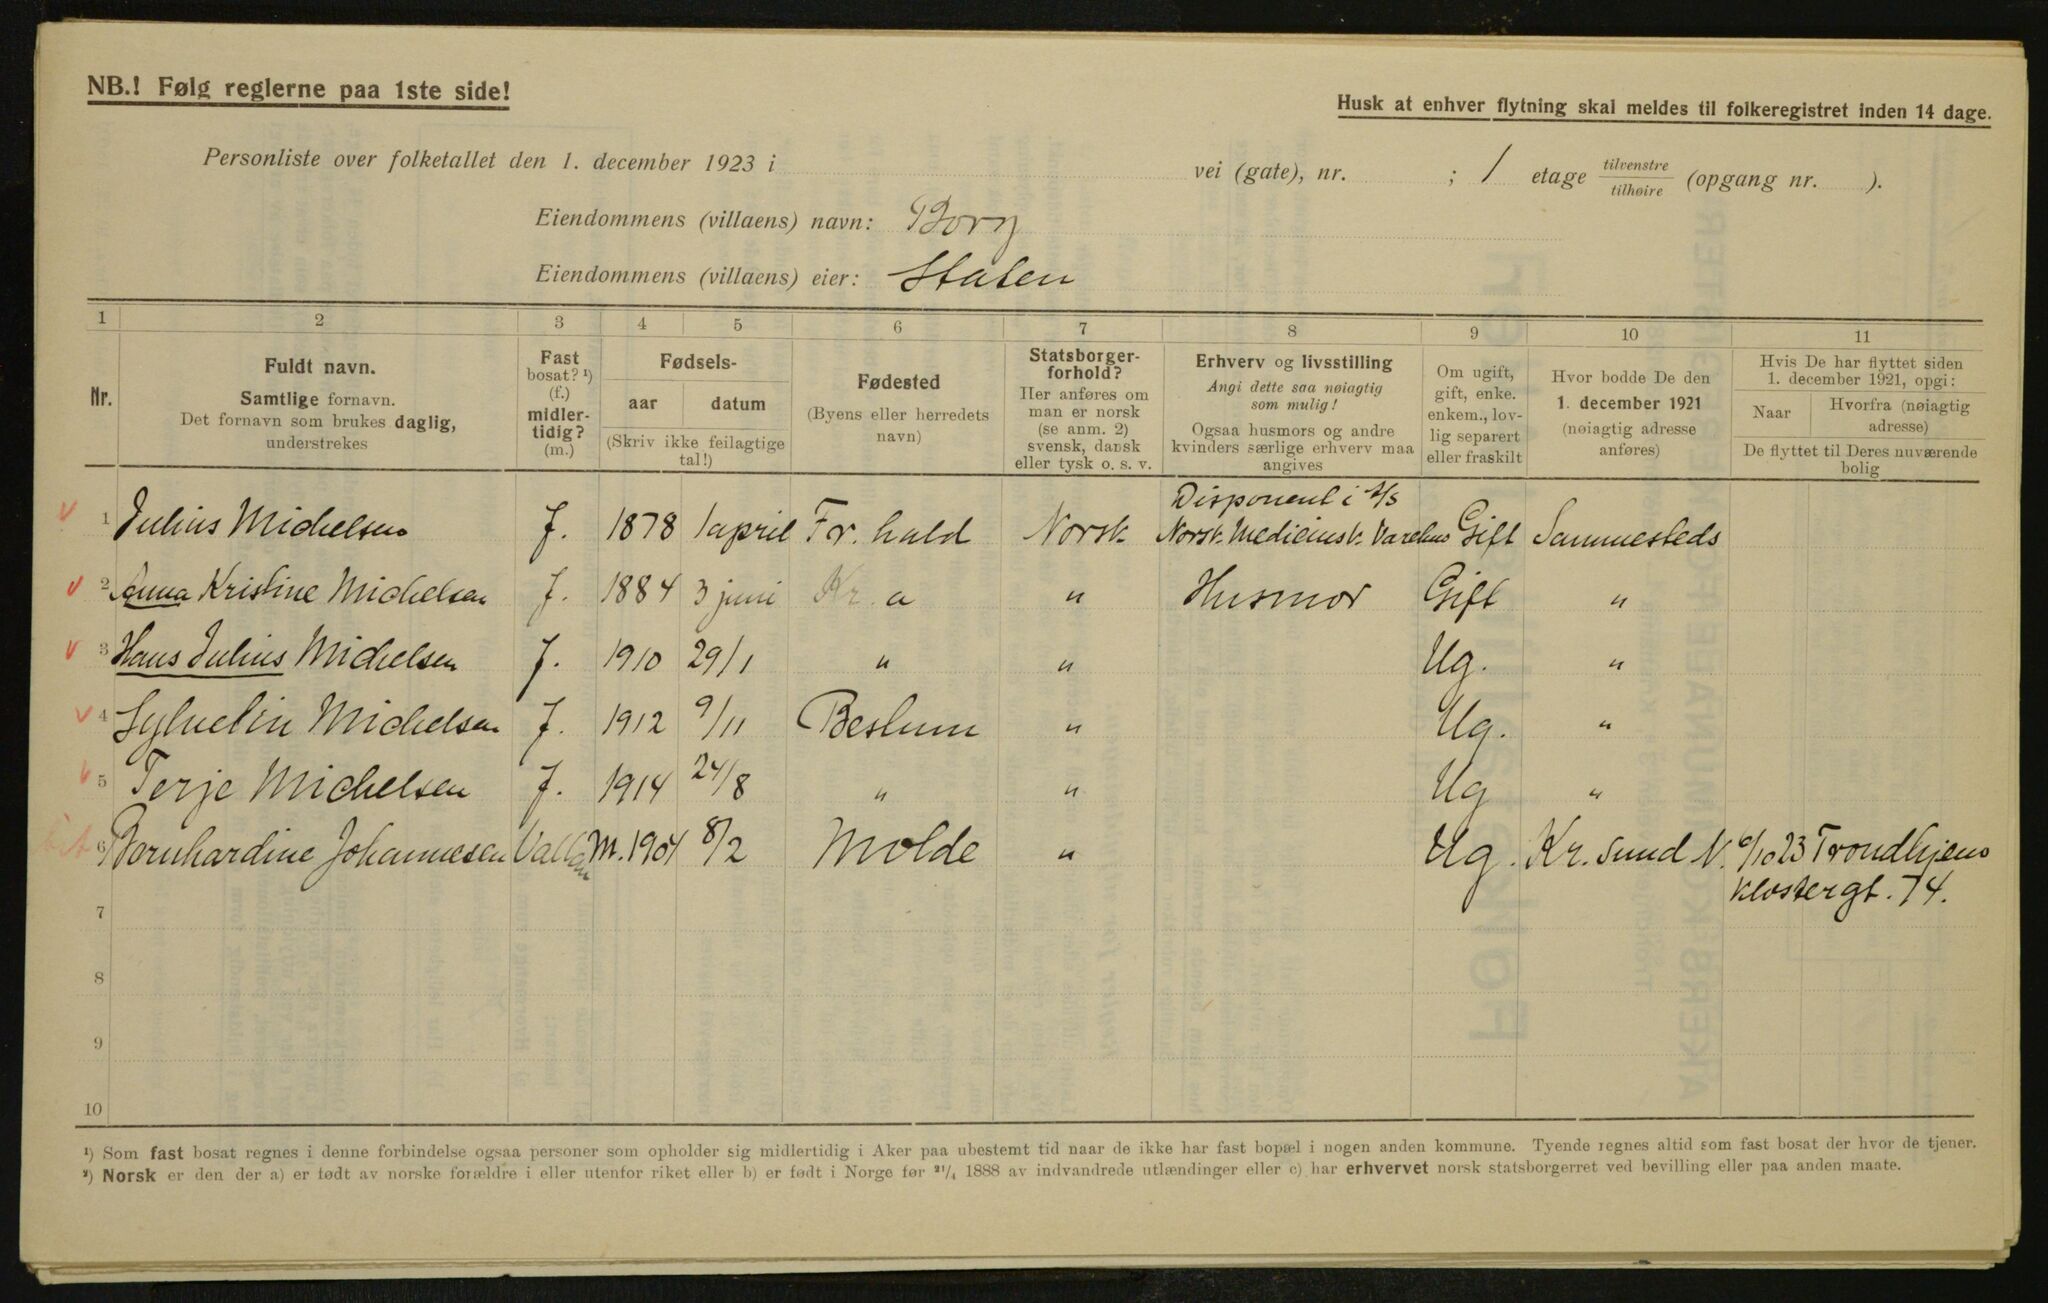 NB.! Følg reglerne paa 1ste side!
Husk at enhver flytning skal meldes til folkeregistret inden 14 dage.
Personliste over folketallet den 1. december 1923 i vei (gate), nr. ; 1 etage tilvenstre tilhøire (opgang nr. ).
Eiendommens (villaens) navn: Borg
Eiendommens (villaens) eier: Staten
1 2 3 4 5 6 7 8 9 10 11
Nr.
Fuldt navn.
Samtlige fornavn.
Det fornavn som brukes daglig,
understrekes
Fast
bosat? ¹)
(f.)
midler-
tidig?
(m.)
Fødsels-
aar datum
(Skriv ikke feilagtige
tal!)
Fødested
(Byens eller herredets
navn)
Statsborger-
forhold?
Her anføres om
man er norsk
(se anm. 2)
svensk, dansk
eller tysk o. s. v.
Erhverv og livsstilling
Angi dette saa nøiagtig
som mulig!
Ogsaa husmors og andre
kvinders særlige erhverv maa
angives
Om ugift,
gift, enke.
enkem., lov-
lig separert
eller fraskilt
Hvor bodde De den
1. december 1921
(nøiagtig adresse
anføres)
Hvis De har flyttet siden
1. december 1921, opgi:
Naar
Hvorfra (nøiagtig
adresse)
De flyttet til Deres nuværende
bolig
Disponent i A/S
1 Julius Michelsen f. 1878 1 april Fr. hald Norsk Norsk Medicinsk Varehus Gift Sammesteds
2 Anna Kristine Michelsen f. 1884 3 juni Kr. a " Husmor Gift "
3 Hans Julius Michelsen f. 1910 29/1 " " Ug. "
4 Sylvelin Michelsen f. 1912 9/11 Bestum " Ug. "
5 Terje Michelsen f. 1914 24/8 " " Ug "
6 Bernhardine Johannesen m. 1904 8/2 Molde " Ug. Kr. sund N. 6/10 23 Trondhjem
Klostergt. 74.
7
8
9
10
¹) Som fast bosat regnes i denne forbindelse ogsaa personer som opholder sig midlertidig i Aker paa ubestemt tid naar de ikke har fast bopæl i nogen anden kommune. Tyende regnes altid som fast bosat der hvor de tjener.
²) Norsk er den der a) er født av norske forældre i eller utenfor riket eller b) er født i Norge før ²¹/₄ 1888 av indvandrede utlændinger eller c) har erhvervet norsk statsborgerret ved bevilling eller paa anden maate.